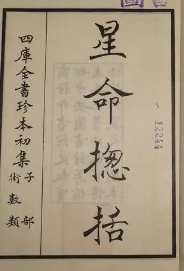 星命揔括
四庫全書珍本初集
子部
術數類
12344